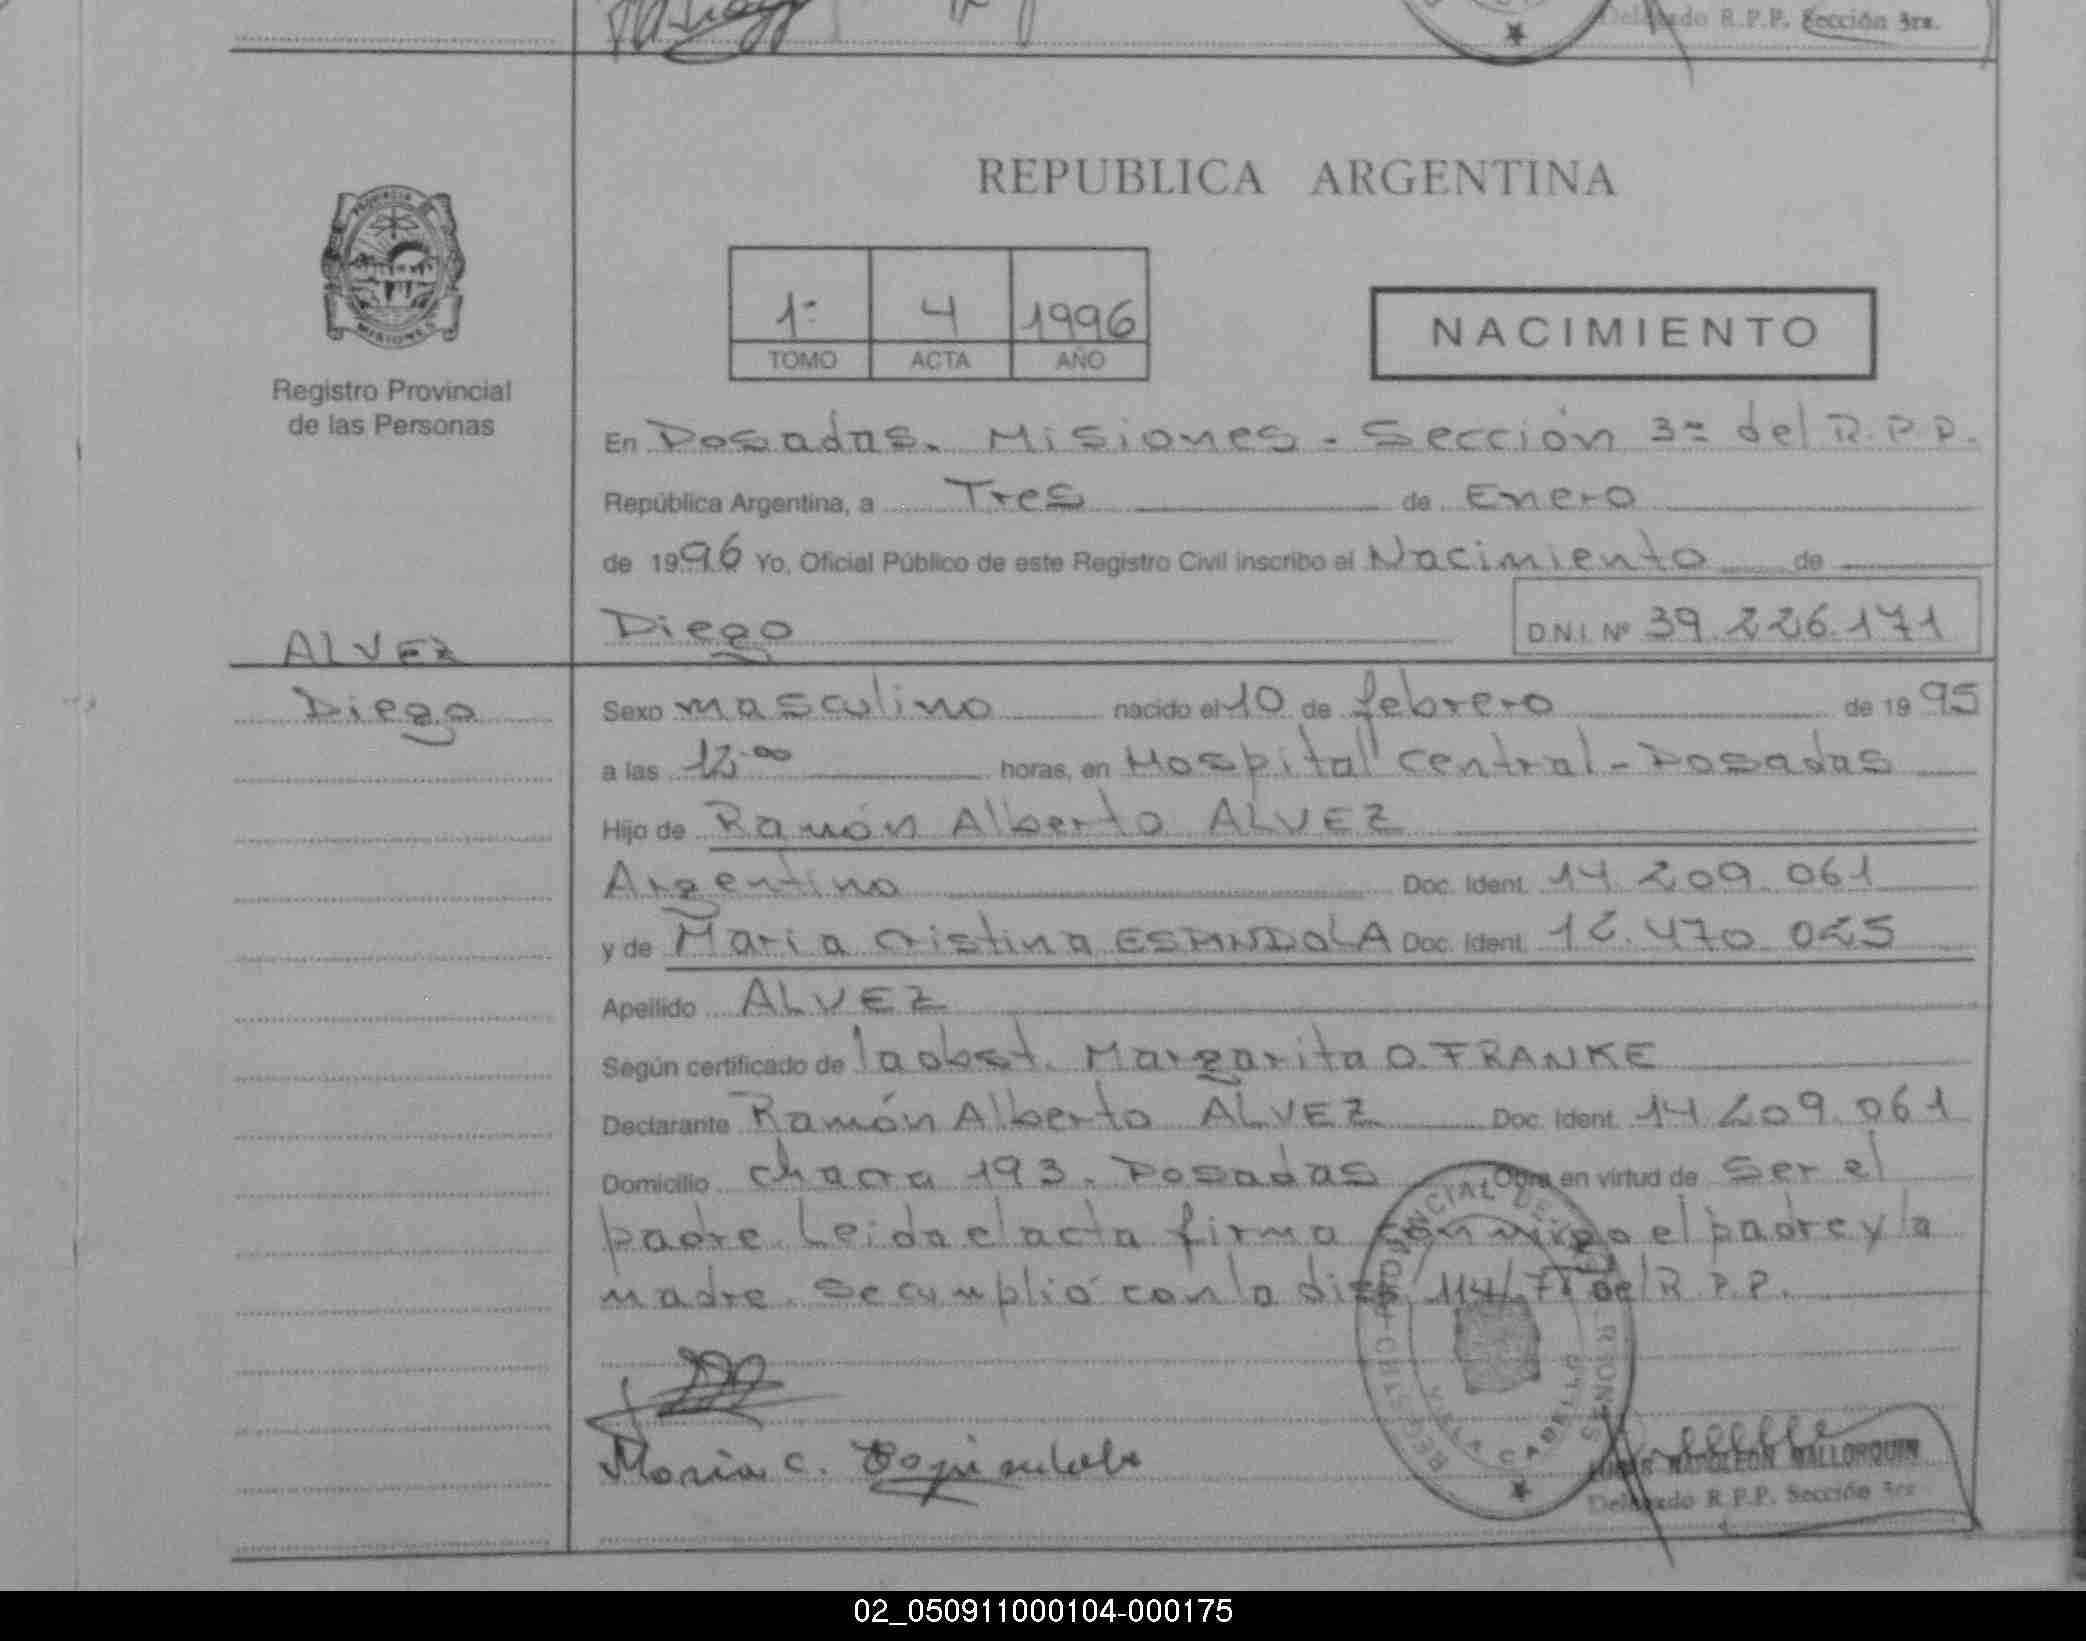 Delegado R.P.P. Sección 3ra.
REPUBLICA ARGENTINA
PROVINCIA DE
MISIONES
Registro Provincial
de las Personas
1º 4 1996
TOMO ACTA AÑO
NACIMIENTO
En Posadas. Misiones - Sección 3º del R.P.P.
República Argentina, a Tres de Enero
de 1996 Yo, Oficial Público de este Registro Civil inscribo el Nacimiento de
ALVEZ
Diego
Diego D.N.I. Nº 39.226.171
Sexo masculino nacido el 10 de febrero de 1995
a las 12:00 horas, en Hospital Central - Posadas
Hijo de Ramón Alberto ALVEZ
Argentino Doc. Ident. 14.209.061
y de Maria Cristina ESPINDOLA Doc. Ident. 12.470.025
Apellido ALVEZ
Según certificado de la obst. Margarita O. FRANKE
Declarante Ramón Alberto ALVEZ Doc. Ident. 14.209.061
Domicilio Chacra 193. Posadas Obra en virtud de ser el
padre. Leida el acta firma conmigo el padre y la
madre. Se cumplió con la disp. 114/71 del R.P.P.
Maria C. Espindola
NAPOLEON MALLORQUIN
Delegado R.P.P. Sección 3ra
02_050911000104-000175